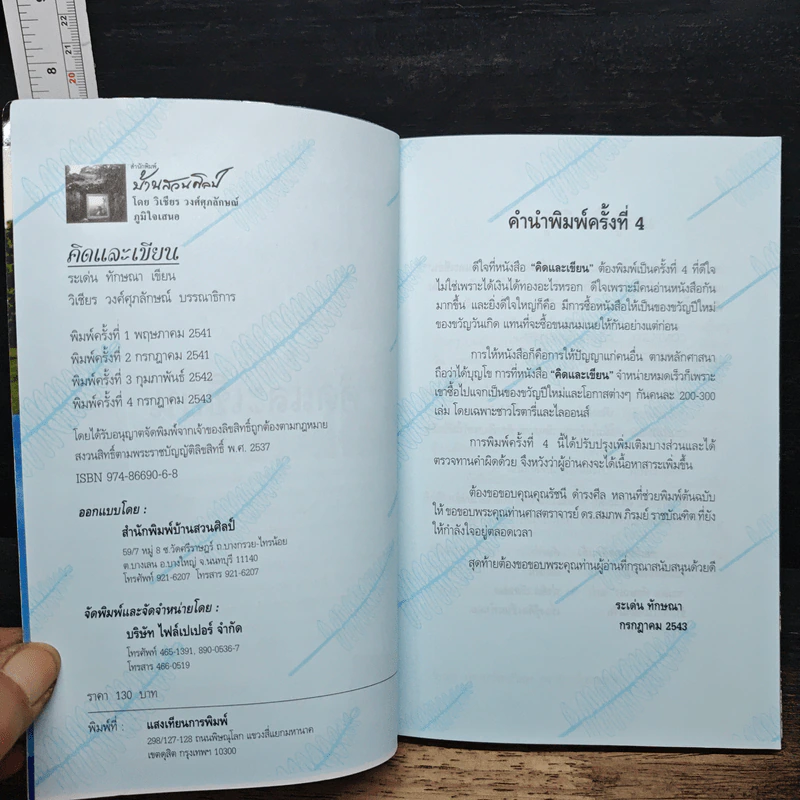 สำนักพิมพ์
บ้านสวนศิลป์
โดย วิเชียร วงศ์ศุภลักษณ์
ภูมิใจเสนอ
คิดและเขียน
ระเด่น ทักษณา เขียน
วิเชียร วงศ์ศุภลักษณ์ บรรณาธิการ
พิมพ์ครั้งที่ 1 พฤษภาคม 2541
พิมพ์ครั้งที่ 2 กรกฎาคม 2541
พิมพ์ครั้งที่ 3 กุมภาพันธ์ 2542
พิมพ์ครั้งที่ 4 กรกฎาคม 2543
โดยได้รับอนุญาตจัดพิมพ์จากเจ้าของลิขสิทธิ์ถูกต้องตามกฎหมาย
สงวนสิทธิ์ตามพระราชบัญญัติลิขสิทธิ์ พ.ศ. 2537
ISBN 974-86690-6-8
ออกแบบโดย :
สำนักพิมพ์บ้านสวนศิลป์
59/7 หมู่ 8 ซ.วัดศรีราษฎร์ ถ.บางกรวย-ไทรน้อย
ต.บางเลน อ.บางใหญ่ จ.นนทบุรี 11140
โทรศัพท์ 921-6207 โทรสาร 921-6207
จัดพิมพ์และจัดจำหน่ายโดย :
บริษัท ไฟล์เปเปอร์ จำกัด
โทรศัพท์ 465-1391, 890-0536-7
โทรสาร 466-0519
ราคา 130 บาท
พิมพ์ที่ : แสงเทียนการพิมพ์
298/127-128 ถนนพิษณุโลก แขวงสี่แยกมหานาค
เขตดุสิต กรุงเทพฯ 10300
คำนำพิมพ์ครั้งที่ 4
ดีใจที่หนังสือ "คิดและเขียน" ต้องพิมพ์เป็นครั้งที่ 4 ที่ดีใจ
ไม่ใช่เพราะได้เงินได้ทองอะไรหรอก ดีใจเพราะมีคนอ่านหนังสือกัน
มากขึ้น และยิ่งดีใจใหญ่ก็คือ มีการซื้อหนังสือให้เป็นของขวัญปีใหม่
ของขวัญวันเกิด แทนที่จะซื้อขนมนมเนยให้กันอย่างแต่ก่อน
การให้หนังสือก็คือการให้ปัญญาแก่คนอื่น ตามหลักศาสนา
ถือว่าได้บุญโข การที่หนังสือ "คิดและเขียน" จำหน่ายหมดเร็วก็เพราะ
เขาซื้อไปแจกเป็นของขวัญปีใหม่และโอกาสต่างๆ กันคนละ 200-300
เล่ม โดยเฉพาะชาวโรตารี่และไลออนส์
การพิมพ์ครั้งที่ 4 นี้ได้ปรับปรุงเพิ่มเติมบางส่วนและได้
ตรวจทานคำผิดด้วย จึงหวังว่าผู้อ่านคงจะได้เนื้อหาสาระเพิ่มขึ้น
ต้องขอขอบคุณคุณรัชนี ดำรงศีล หลานที่ช่วยพิมพ์ต้นฉบับ
ให้ ขอขอบพระคุณท่านศาสตราจารย์ ดร.สมภพ ภิรมย์ ราชบัณฑิต ที่ยัง
ให้กำลังใจอยู่ตลอดเวลา
สุดท้ายต้องขอขอบพระคุณท่านผู้อ่านที่กรุณาสนับสนุนด้วยดี
ระเด่น ทักษณา
กรกฎาคม 2543